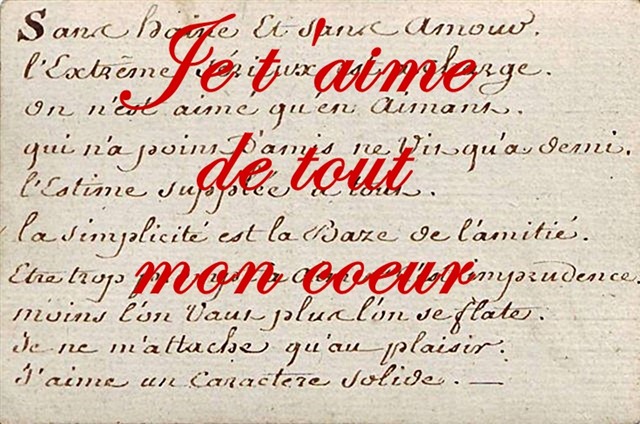 Je t'aime
de tout
mon coeur
Sans haine Et sans amour.
l'Extrême Sérieux est a charge.
on n'est aimé qu'en aimant.
qui n'a point d'amis ne vit qu'a demi.
l'Estime supplée a tout.
la simplicité est la Baze de l'amitié.
Etre trop imprudence.
moins l'on vaut plus l'on se flate.
Je ne m'attache qu'au plaisir.
J'aime un caractere solide. —